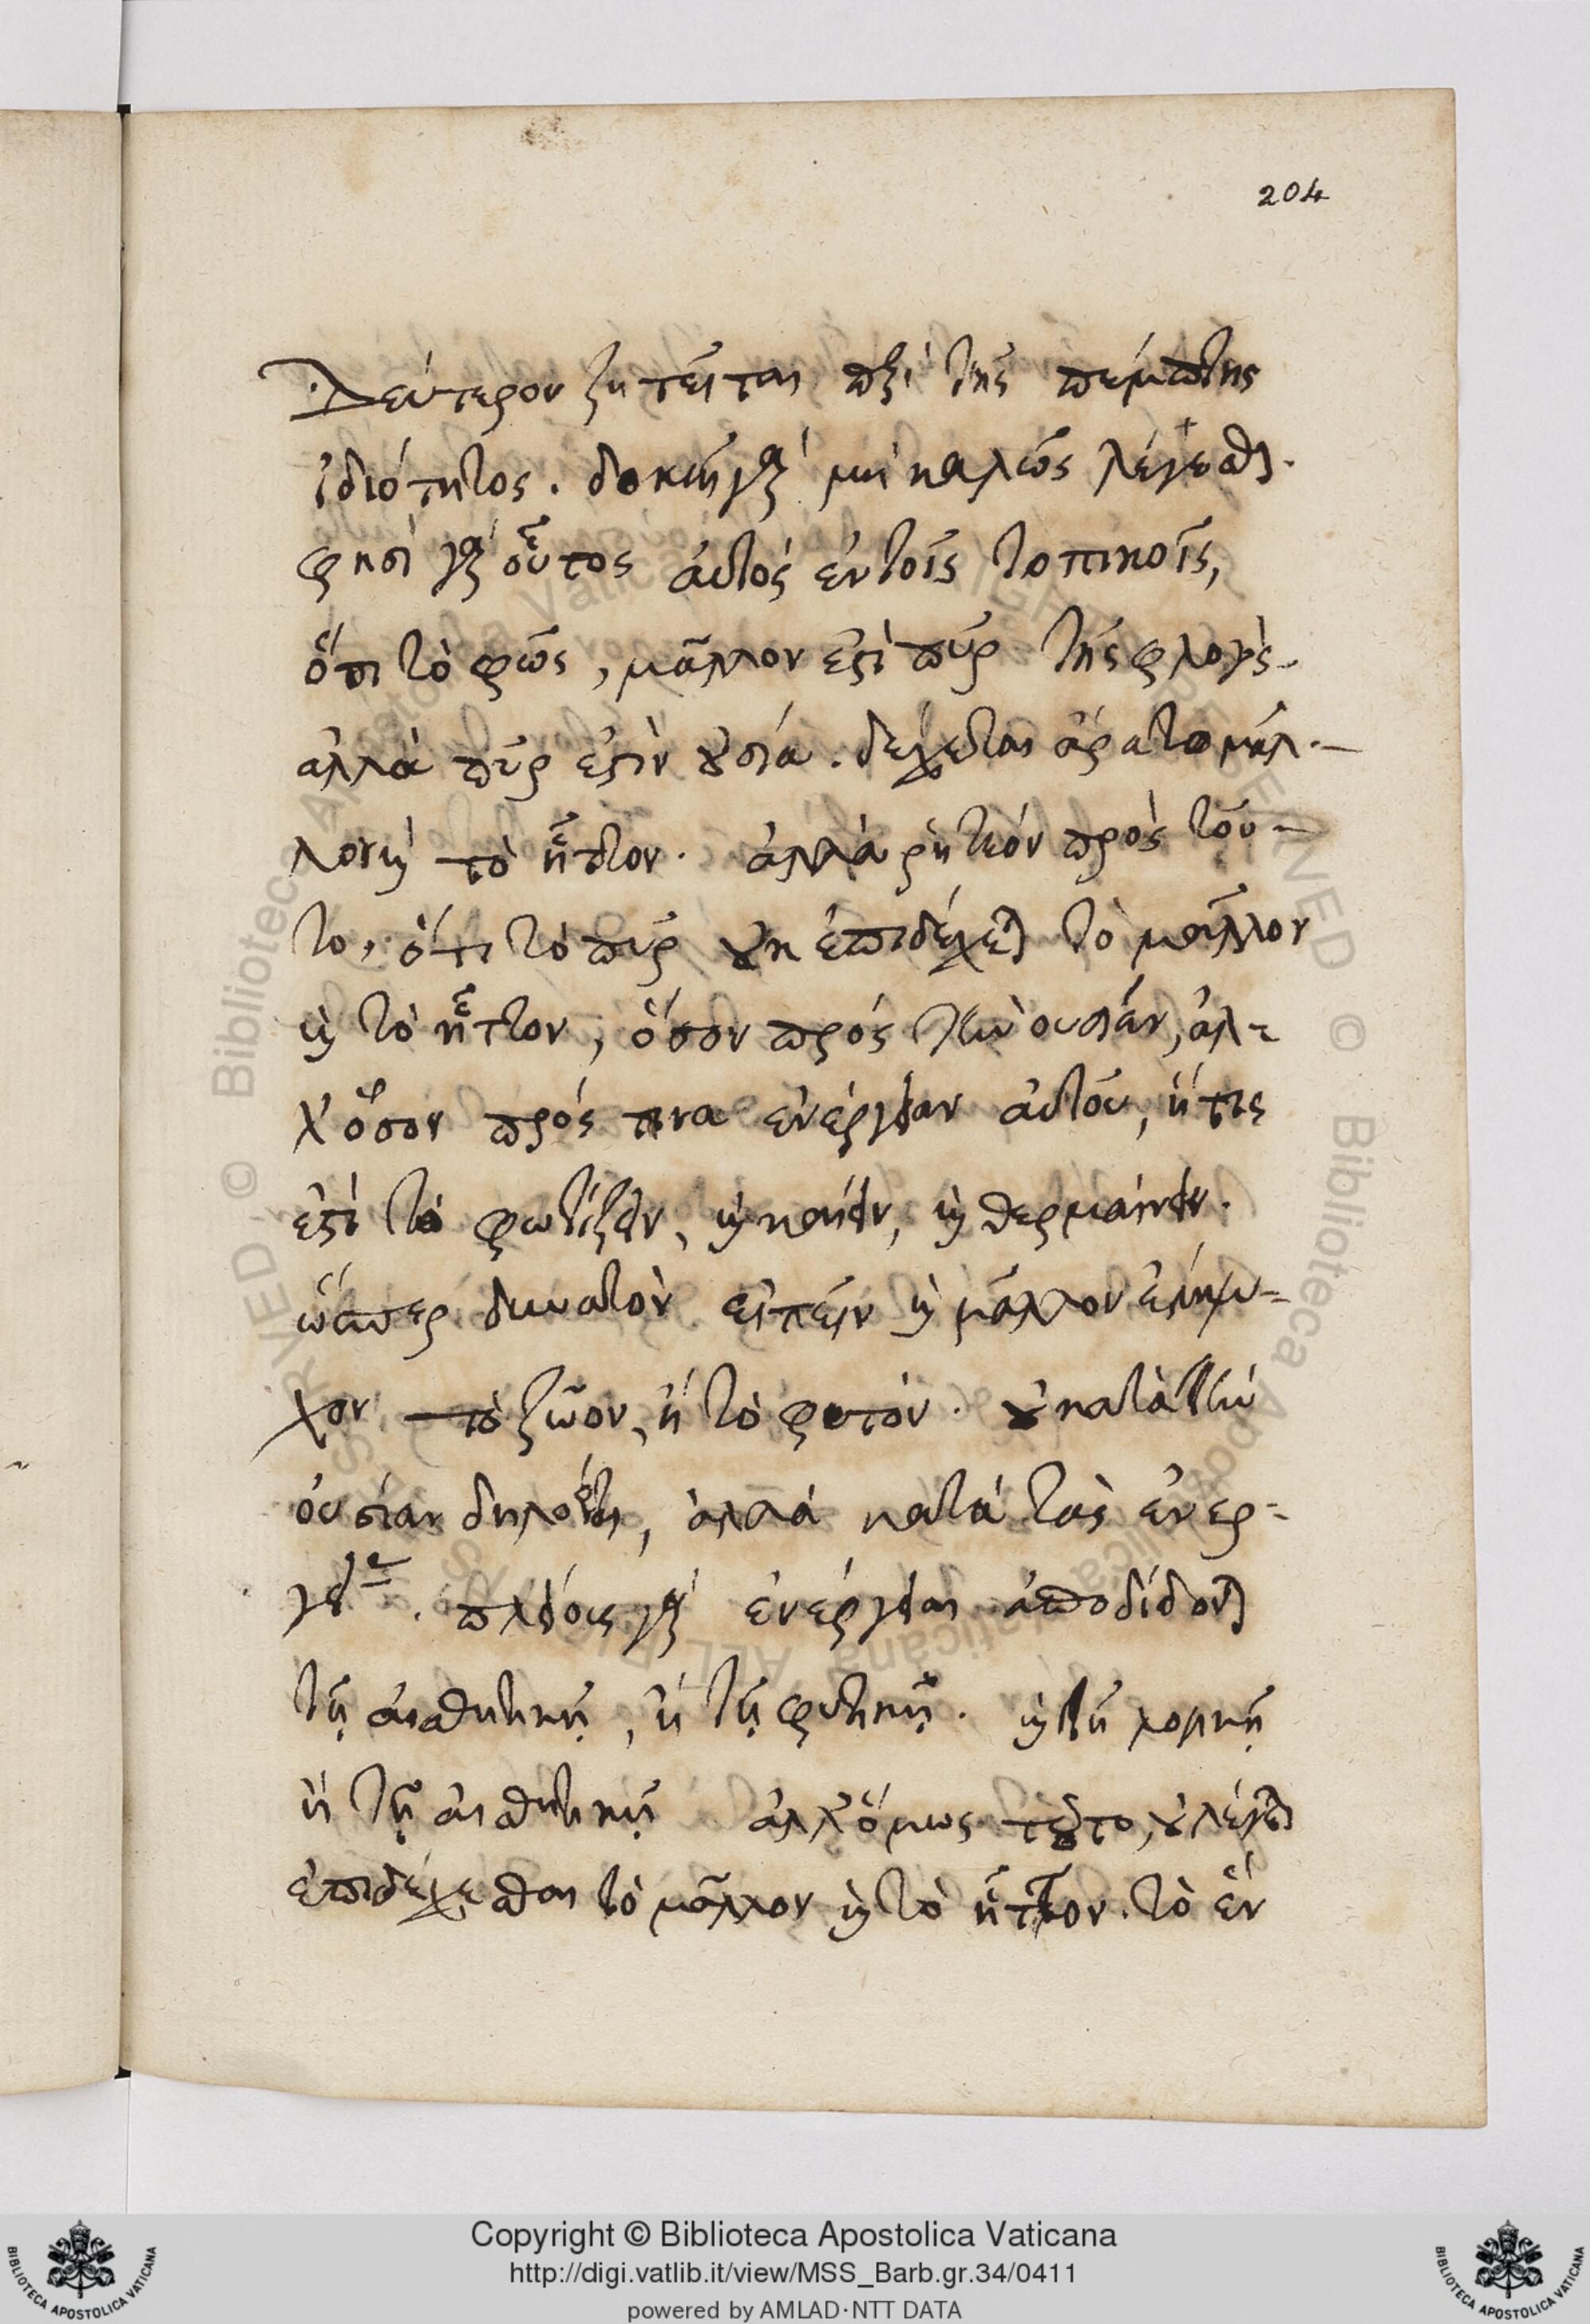 204
Δεύτερον ζητεῖται περὶ τῆς πέμπτης
ἰδιότητος. δοκεῖ γὰρ μὴ καλῶς λέγεσθαι.
φησὶ γὰρ οὗτος αὐτὸς ἐν τοῖς τοπικοῖς,
ὅτι τὸ φῶς, μᾶλλον ἐστὶ πῦρ τῆς φλογός.
ἀλλὰ πῦρ ἐστὶν οὐσία. δέχεται ἄρα τὸ μᾶλ-
λον καὶ τὸ ἧττον. ἀλλὰ ῥητέον πρὸς τοῦ-
το, ὅτι τὸ πῦρ οὐκ ἐπιδέχεται τὸ μᾶλλον
καὶ τὸ ἧττον, ὅσον πρὸς τὴν οὐσίαν, ἀλ-
λ' ὅσον πρός τινα ἐνέργειαν αὐτοῦ, ἥτις
ἐστὶ τὸ φωτίζειν, καὶ καίειν, καὶ θερμαίνειν.
ὥσπερ δυνατὸν εἰπεῖν καὶ μᾶλλον ἔμψυ-
χον τὸ ζῶον, ἢ τὸ φυτόν. οὐ κατὰ τὴν
οὐσίαν δηλονότι, ἀλλὰ κατὰ τὰς ἐνερ-
γείας. πλείους γὰρ ἐνέργειαι ἀποδίδονται
τῇ αἰσθητικῇ, ἢ τῇ φυτικῇ. καὶ τῇ λογικῇ
ἢ τῇ αἰσθητικῇ ἀλλ' ὅμως τοῦτο, οὐ λέγεται
ἐπιδέχεσθαι τὸ μᾶλλον καὶ τὸ ἧττον. τὸ ἓν
Copyright © Biblioteca Apostolica Vaticana
http://digi.vatlib.it/view/MSS_Barb.gr.34/0411
powered by AMLAD·NTT DATA
BIBLIOTECA APOSTOLICA VATICANA
BIBLIOTECA APOSTOLICA VATICANA